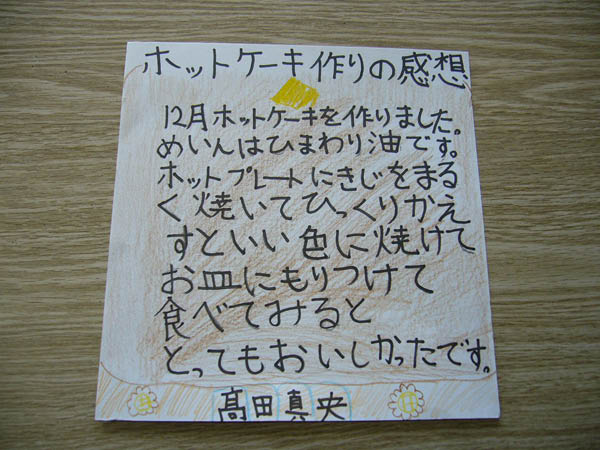 ホットケーキ作りの感想
12月ホットケーキを作りました。
めいんはひまわり油です。
ホットプレートにきじをまる
く焼いてひっくりかえ
すといい色に焼けて
お皿にもりつけて
食べてみると
とってもおいしかったです。
髙田真央